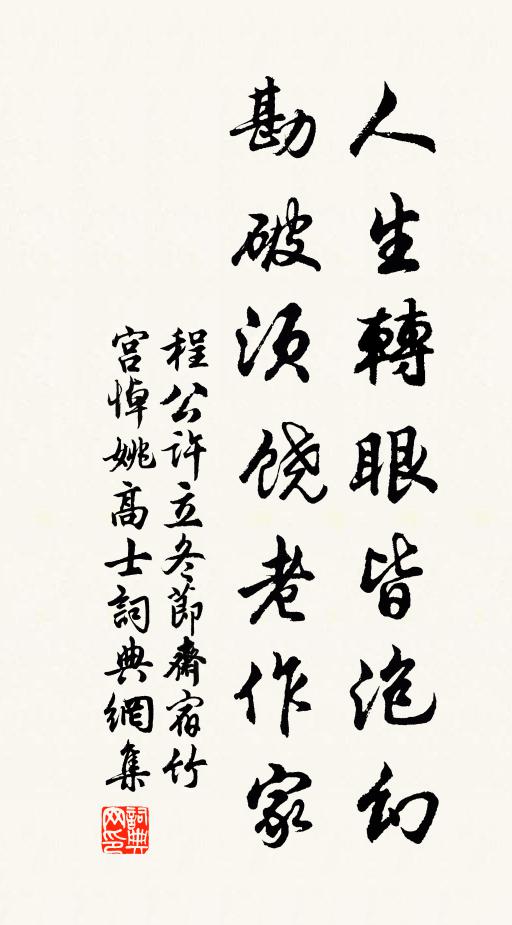 人生轉眼皆泡幻
勘破須饶老作家
程公許立冬節齋宿竹
宮悼姚高士詞典網集
詞典网印